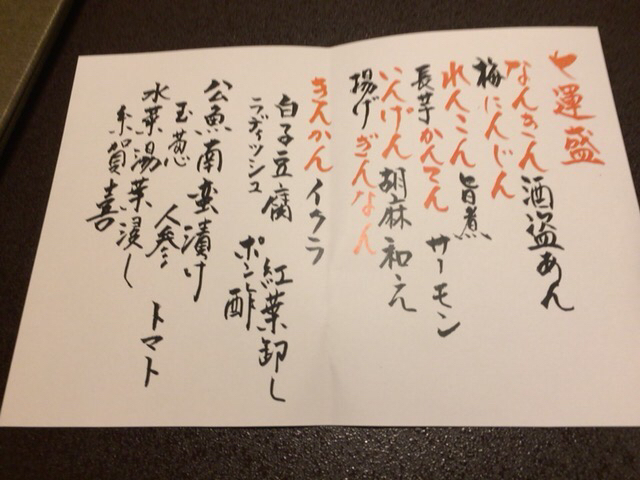 七運盛
なんきん酒盗あん
梅にんじん
れんこん旨煮
長芋かんてん サーモン
いんげん胡麻和え
揚げぎんなん
きんかんイクラ
白子豆腐 紅葉卸し
ラディッシュ ポン酢
公魚南蛮漬け
玉葱 人参 トマト
水菜湯葉浸し
糸賀喜